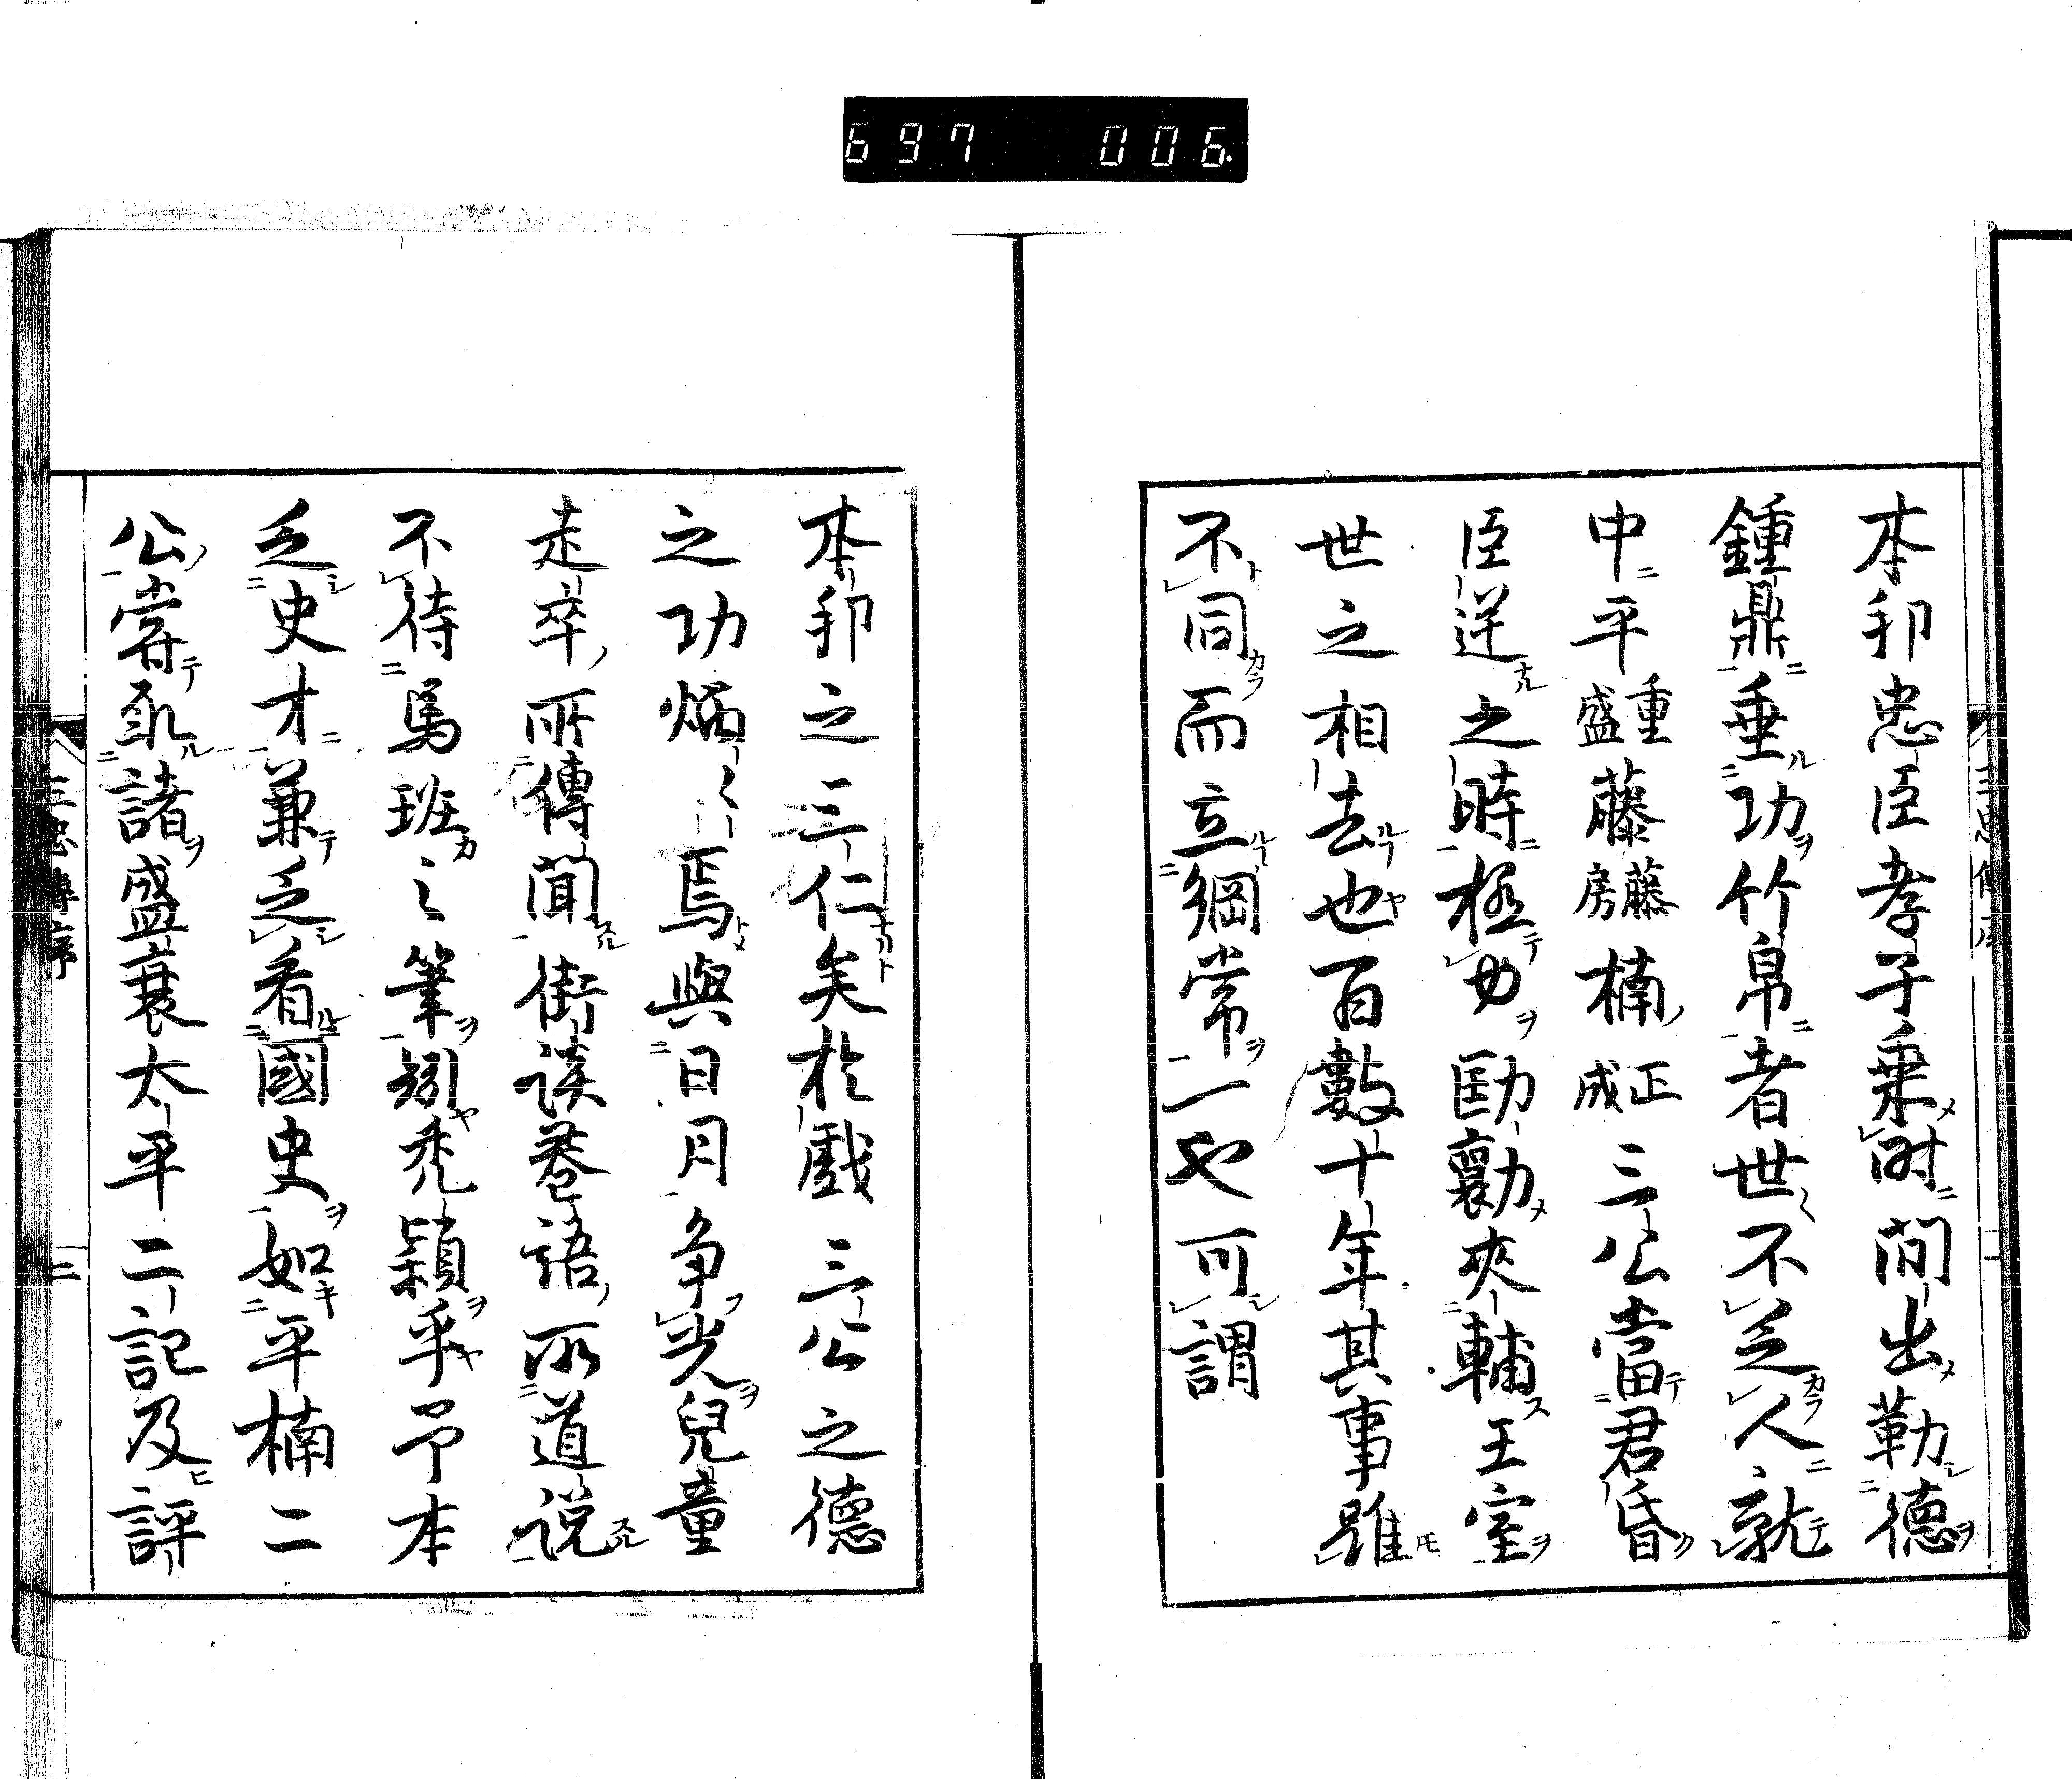 697 006
本邦忠臣孝子乗時間出勒德
鍾鼎垂功竹帛者世〻不乏人就
中平重盛藤藤房楠正成三公當君昏
臣逆之時極力劻勷夾輔王室
世之相去也百數十年其事雖
不同而立綱常一也可謂
本邦之三仁矣於戲三公之德
之功炳〻焉與日月爭光兒童
走卒所傳聞街談巷語所道説
不待馬班之筆矧禿穎乎予本
乏史才兼乏看國史如平楠二
公嘗取諸盛衰太平二記及評
三忠傳序
二